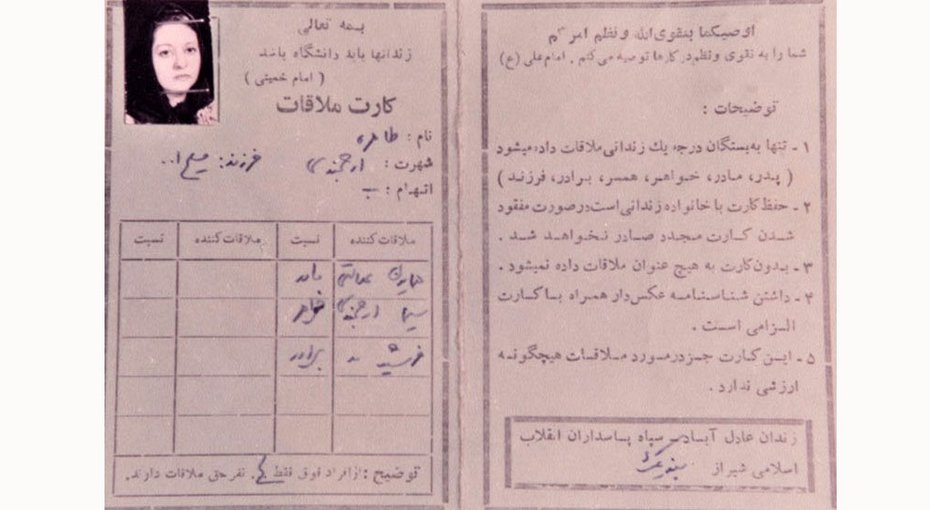 اوصیکما بتقوی‌الله ونظم امرکم
شما را به تقوی ونظم‌در کارها توصیه می‌کنم . امام‌علی (ع)
توضیحات :
۱ - تنها به‌بستگان درجه یك زندانی‌ملاقات داده‌میشود
( پدر، مادر، خواهر، همسر، برادر، فرزند )
۲ - حفظ‌کارت با خانواده زندانی‌است‌درصورت مفقود
شدن کارت مجدد صادر نخواهد شد .
۳ - بدون‌کارت به هیچ عنوان ملاقات داده نمیشود .
۴ - داشتن شناسنامه عکس‌دار همراه بـا کارت
الزامی است .
۵ - این کارت جزدرمورد ملاقات هیچگونه
ارزشی ندارد .
زندان عادل آباد سپاه پاسداران انقلاب
اسلامی شیراز
بسمه تعالی
زندانها باید دانشگاه باشد
( امام خمینی )
کارت ملاقات
نام : طاهره
شهرت : ارجمندی فرزند: مسیح ا..
اتهام : ب
ملاقات‌کننده نسبت ملاقات‌کننده نسبت
مادر
سیما ارجمندی خواهر
فرشید " برادر
توضیح : ازافراد فوق فقط نفرحق ملاقات دارند.